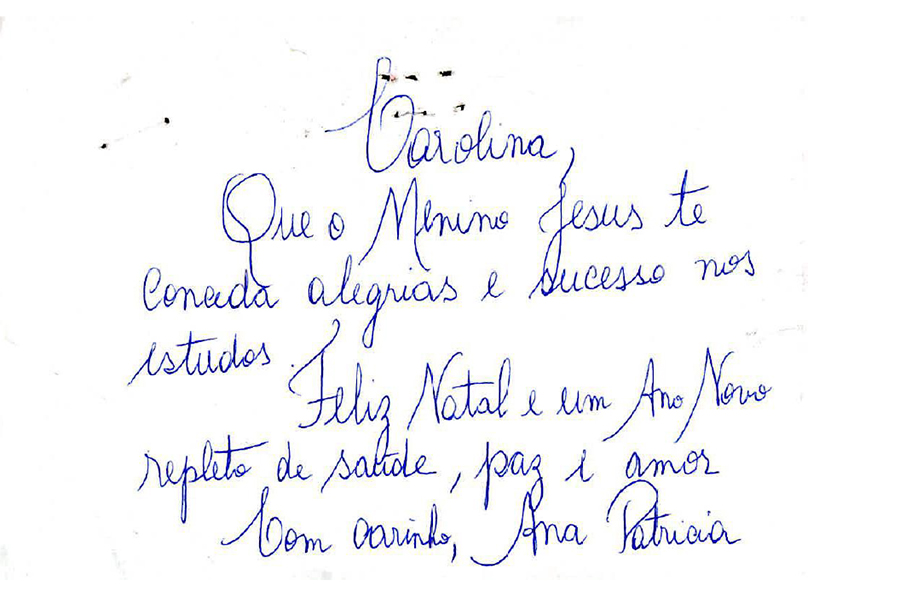 Carolina,
Que o Menino Jesus te
conceda alegrias e sucesso nos
estudos.
Feliz Natal e um Ano Novo
repleto de saúde, paz e amor
Com carinho, Ana Patricia